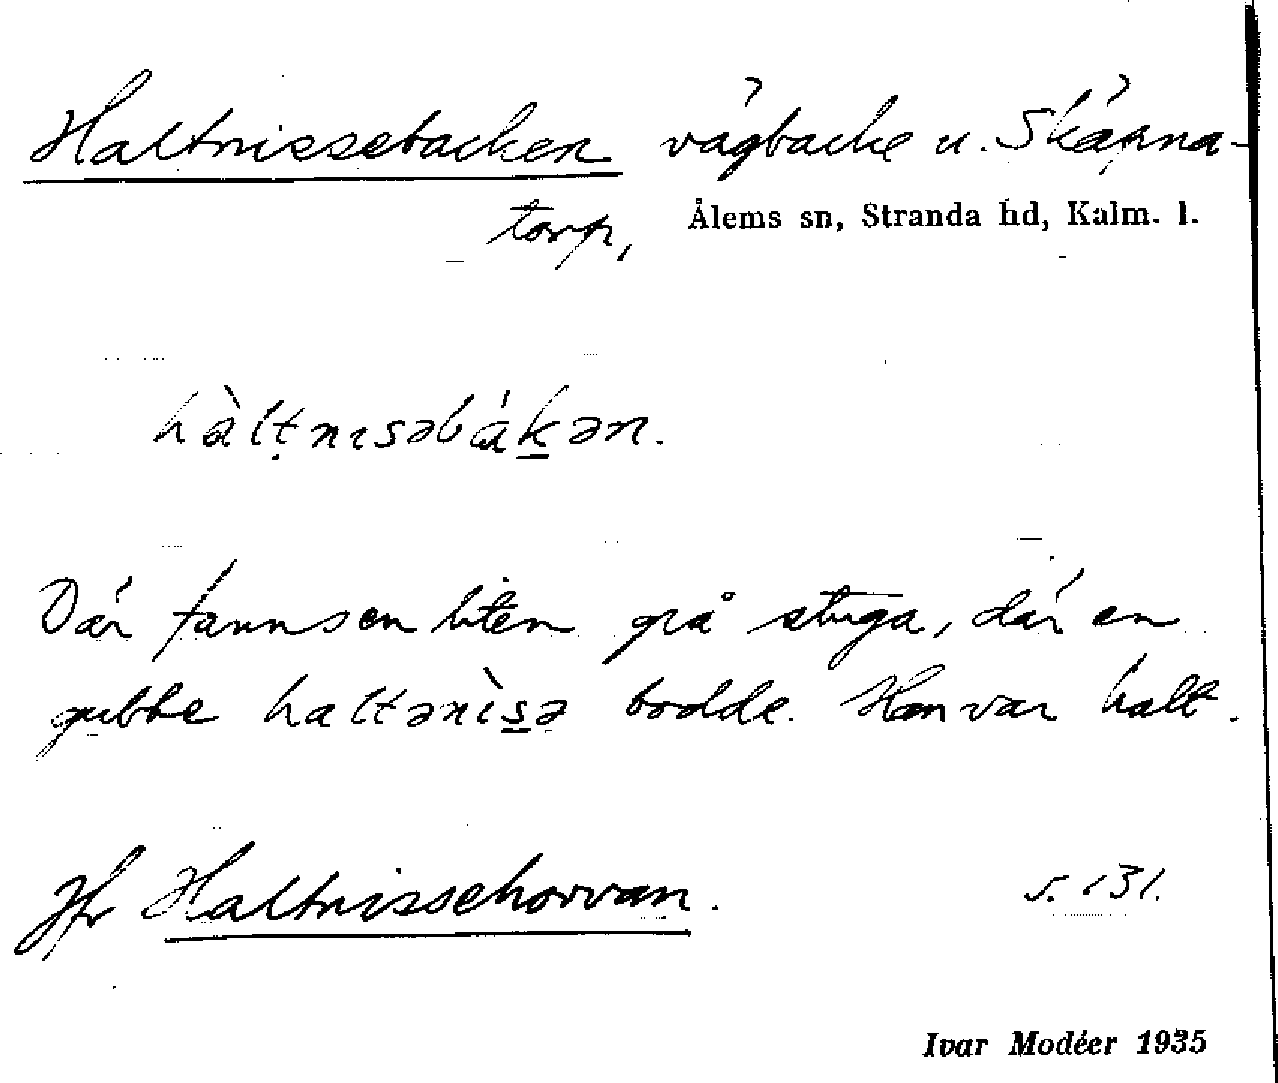 Haltnissebacken vägbacke u. Skäppna-
torp, Ålems sn, Stranda hd, Kalm. l.
hàltṇısəbákən.
Där fanns en liten grå stuga, där en
gubbe haltənìsə bodde. Han var halt.
Jfr Haltnissehorvan. s. 131.
Ivar Modéer 1935